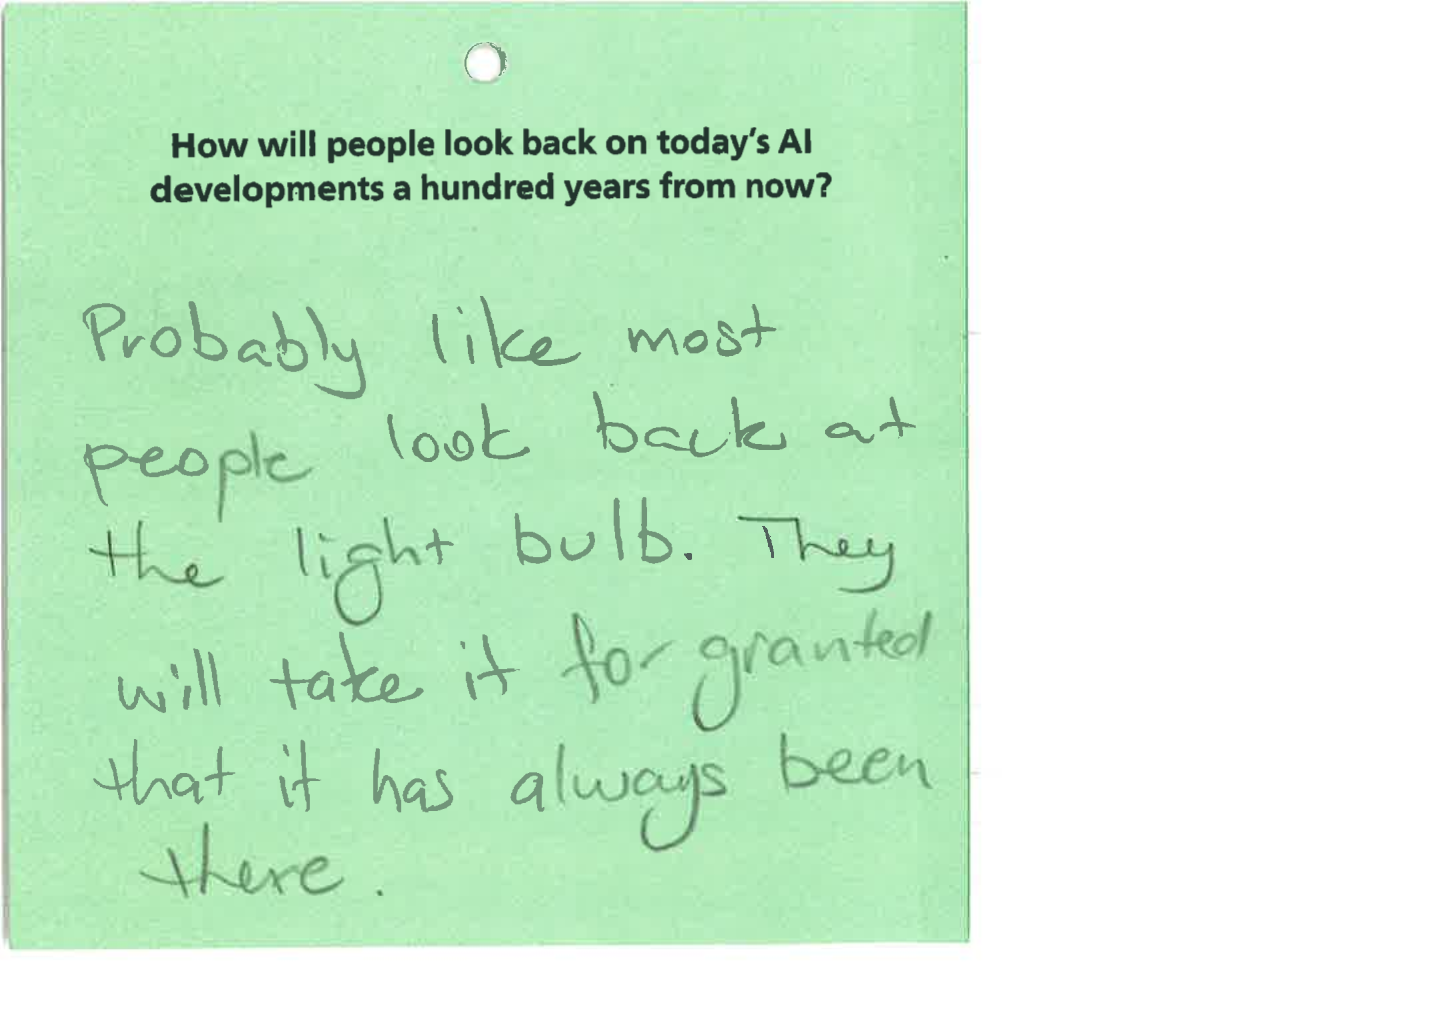 How will people look back on today's AI
developments a hundred years from now?
Probably like most
people look back at
the light bulb. They
will take it for granted
that it has always been
there.